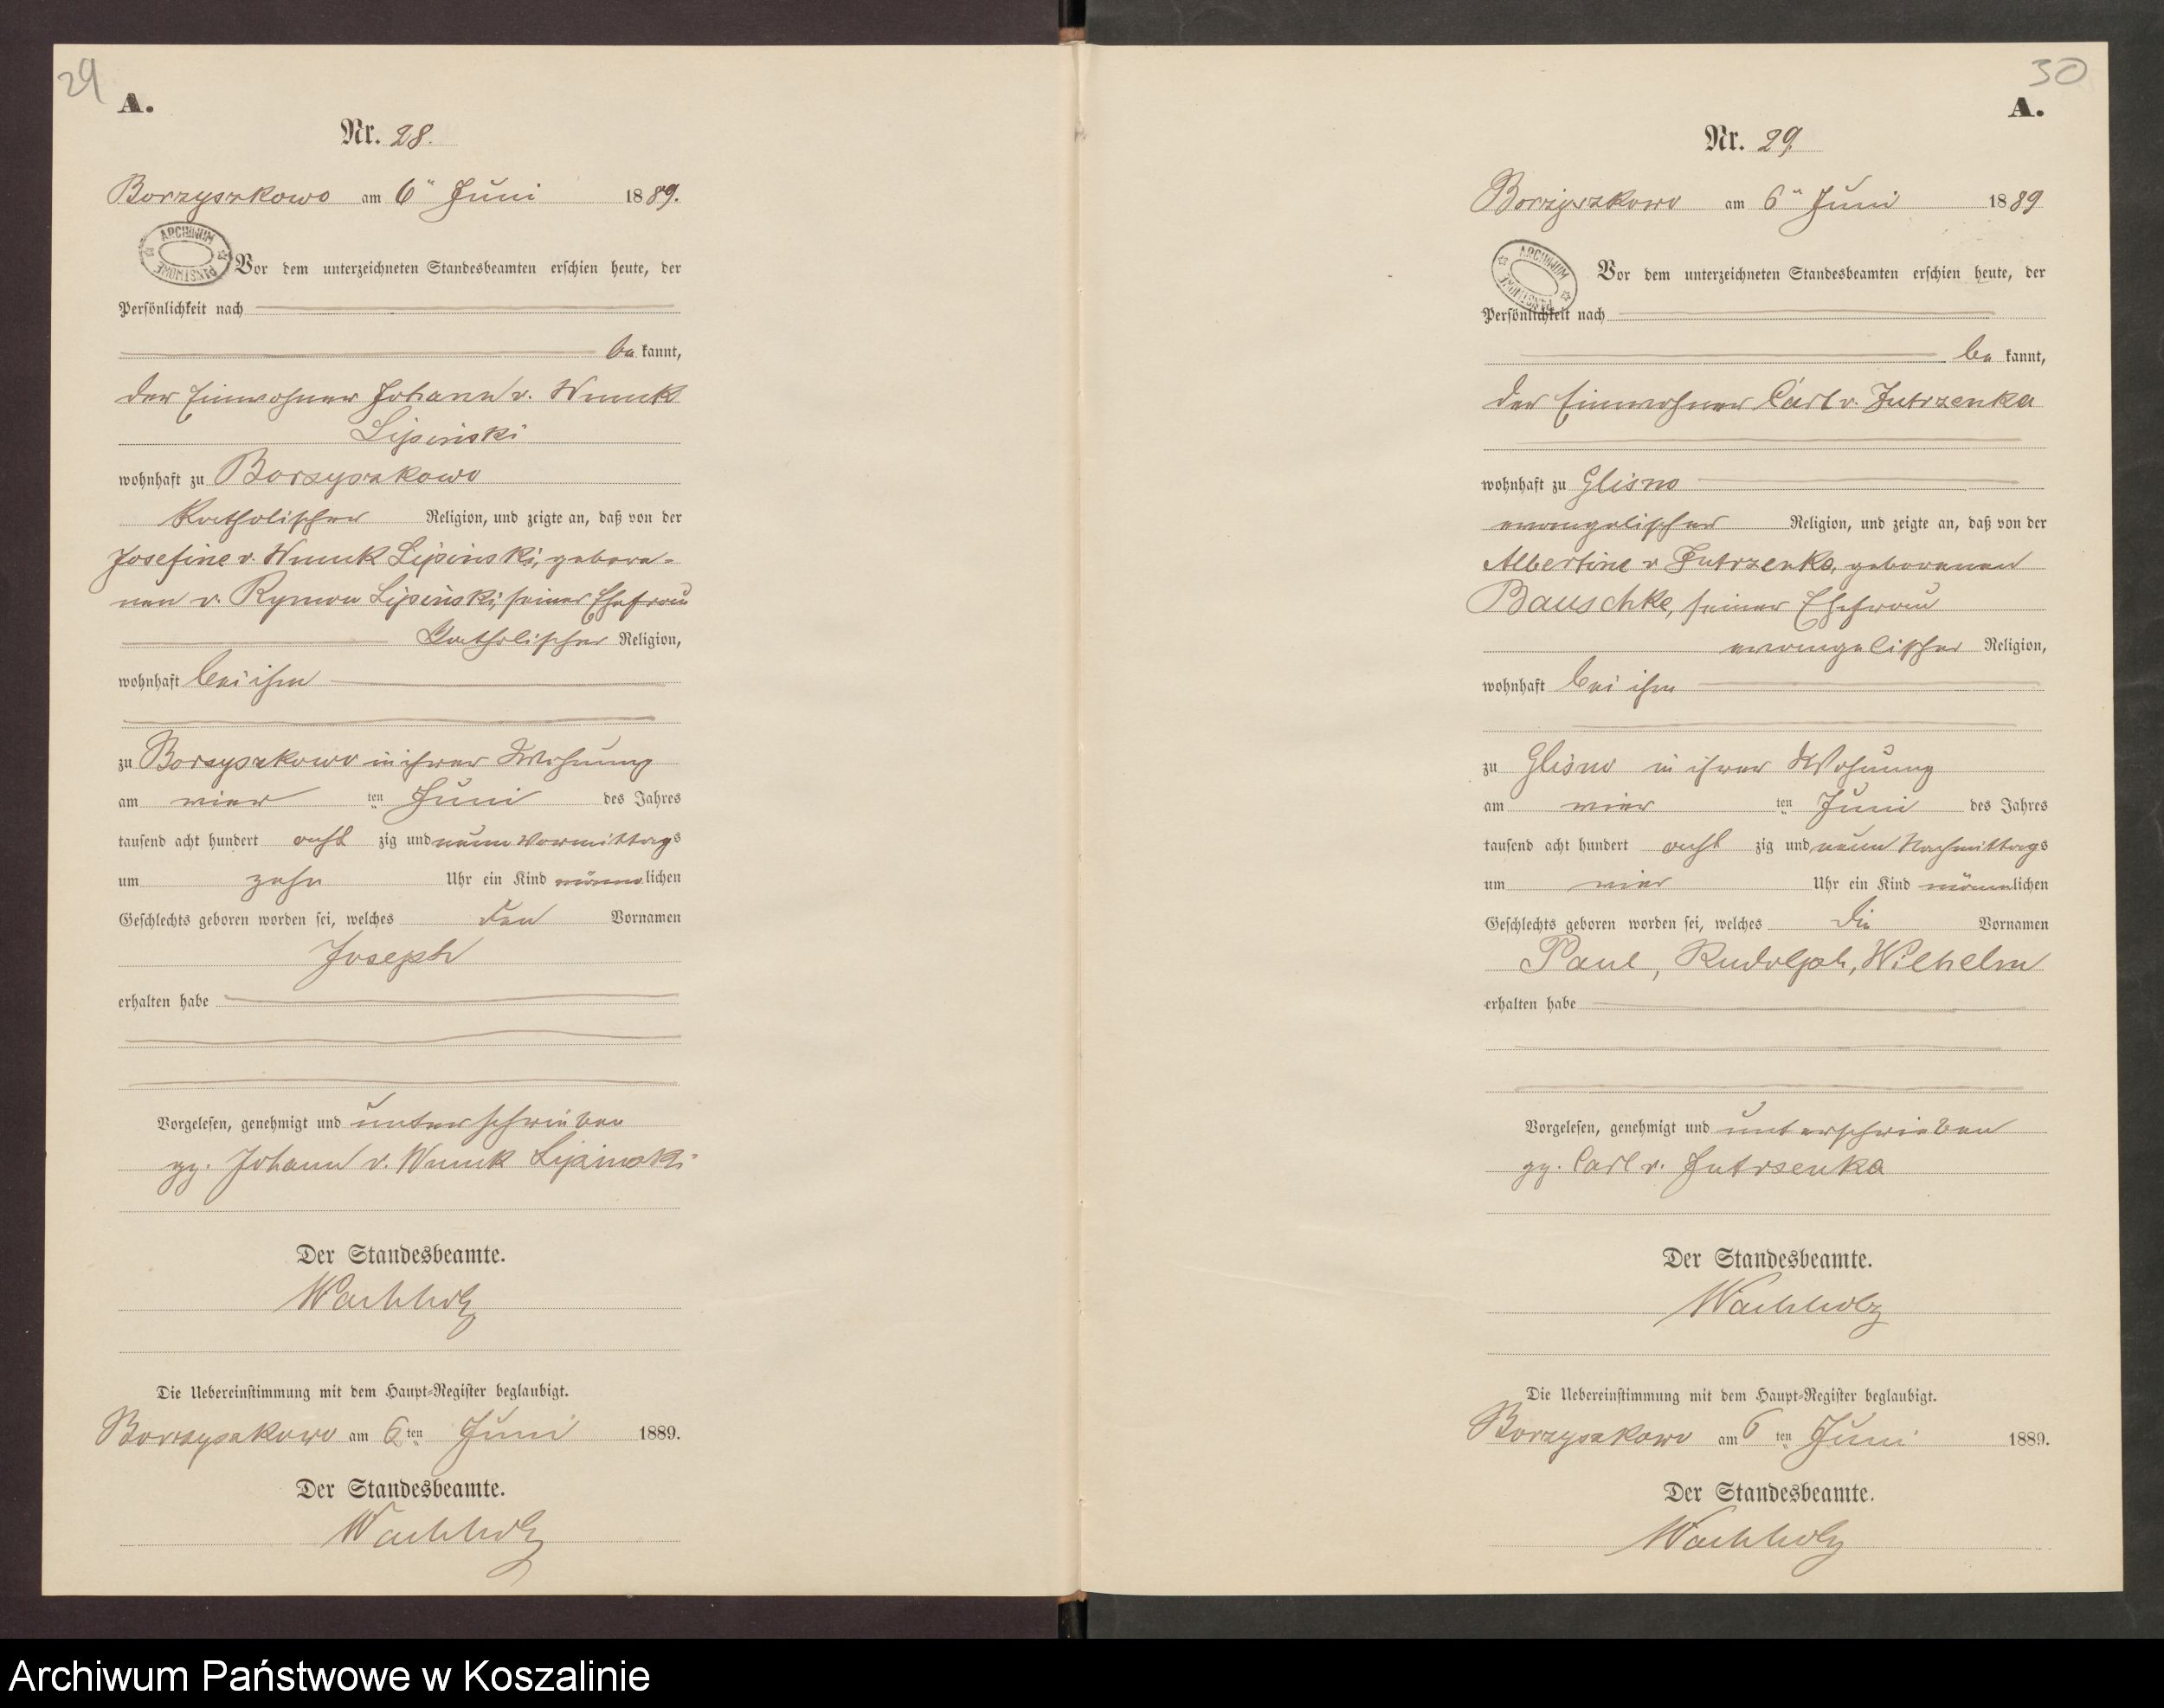 29
A.
Nr. 28.
Borzyszkowo am 6ten Juni 1889.
ARCHIWUM PAŃSTWOWE
Vor dem unterzeichneten Standesbeamten erschien heute, der
Persönlichkeit nach
be kannt,
der Einwohner Johann v. Wnuck
Lipinski
wohnhaft zu Borzyszkowo
katholischer Religion, und zeigte an, daß von der
Josefine v. Wnuck Lipinski, gebore-
nen v. Rymon Lipinski, seiner Ehefrau
katholischer Religion,
wohnhaft bei ihm
zu Borzyszkowo in ihrer Wohnung
am vier ten Juni des Jahres
tausend acht hundert acht zig und neun Vormittags
um zehn Uhr ein Kind männlichen
Geschlechts geboren worden sei, welches den Vornamen
Joseph
erhalten habe
Vorgelesen, genehmigt und unterschrieben
gz. Johann v. Wnuck Lipinski
Der Standesbeamte.
Wachholz
Die Uebereinstimmung mit dem Haupt-Register beglaubigt.
Borzyszkowo am 6ten Juni 1889.
Der Standesbeamte.
Wachholz
30
A.
Nr. 29
Borzyszkowo am 6ten Juni 1889
ARCHIWUM PAŃSTWOWE
Vor dem unterzeichneten Standesbeamten erschien heute, der
Persönlichkeit nach
be kannt,
der Einwohner Carl v. Jutrzenka
wohnhaft zu Glisno
evangelischer Religion, und zeigte an, daß von der
Albertine v Jutrzenka, geborenen
Bauschke, seiner Ehefrau
evangelischer Religion,
wohnhaft bei ihm
zu Glisno in ihrer Wohnung
am vier ten Juni des Jahres
tausend acht hundert acht zig und neun Nachmittags
um vier Uhr ein Kind männlichen
Geschlechts geboren worden sei, welches die Vornamen
Paul, Rudolph, Wilhelm
erhalten habe
Vorgelesen, genehmigt und unterschrieben
gz. Carl v. Jutrsenka
Der Standesbeamte.
Wachholz
Die Uebereinstimmung mit dem Haupt-Register beglaubigt.
Borzyszkowo am 6 ten Juni 1889.
Der Standesbeamte.
Wachholz
Archiwum Państwowe w Koszalinie